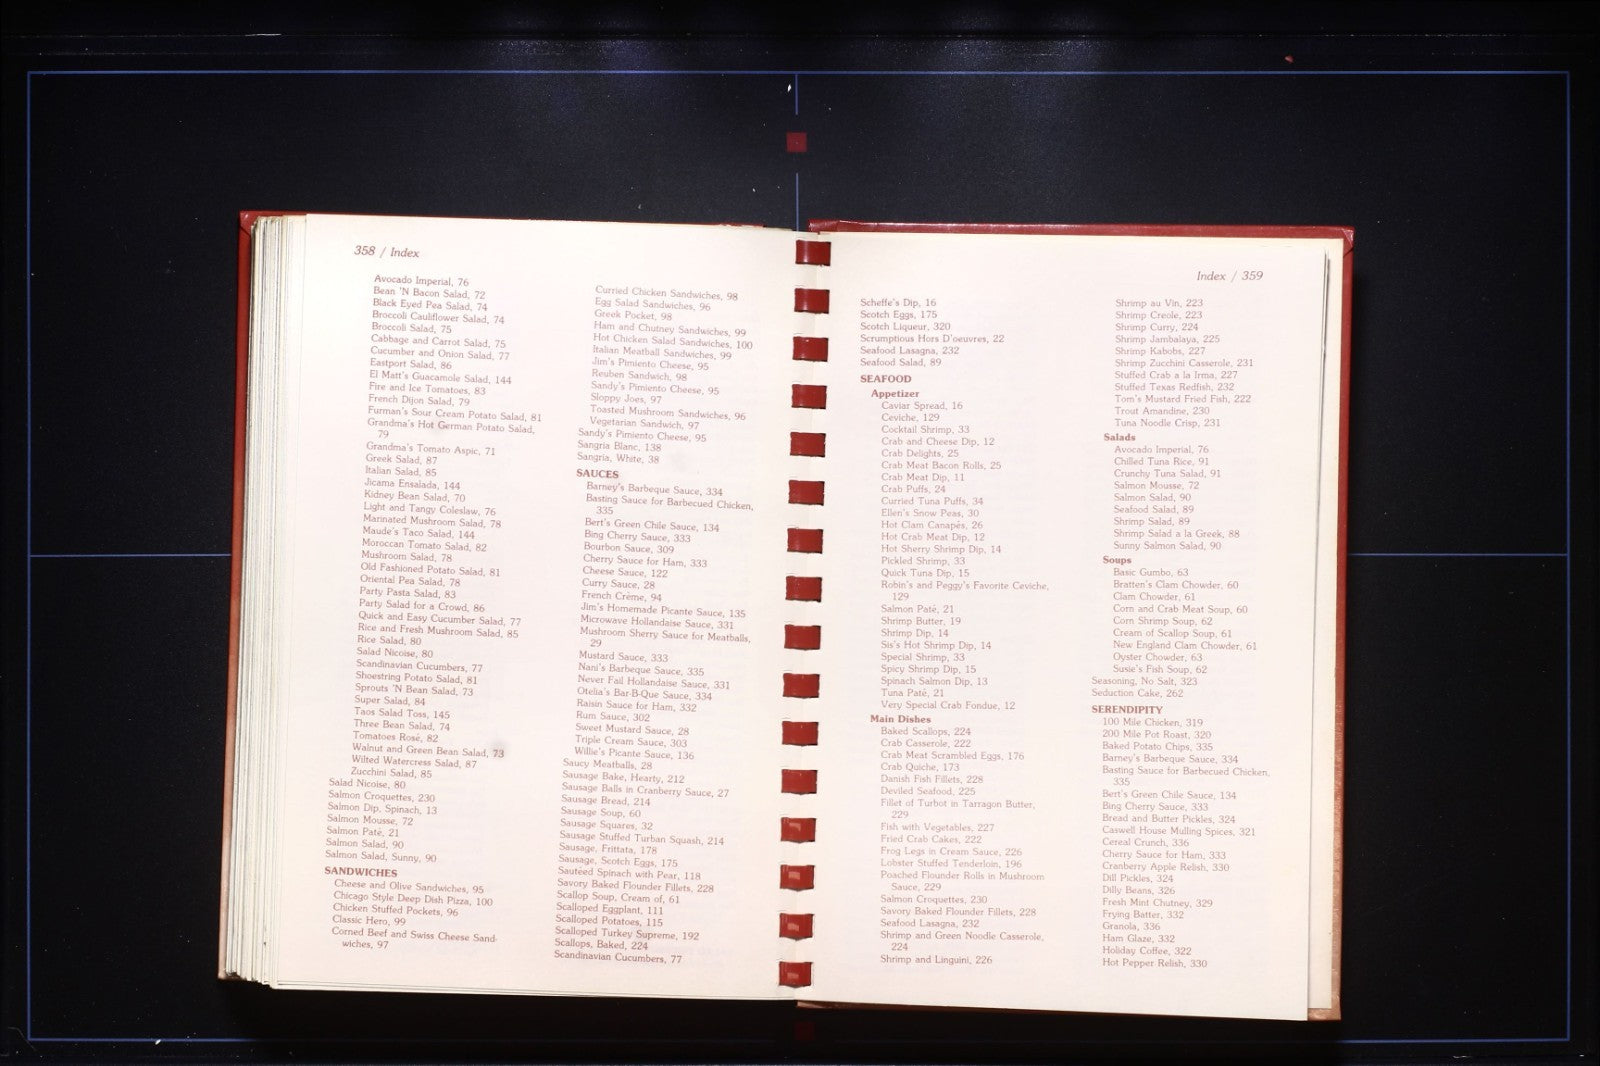 358 / Index
Avocado Imperial, 76
Bean 'N Bacon Salad, 72
Black Eyed Pea Salad, 74
Broccoli Cauliflower Salad, 74
Broccoli Salad, 75
Cabbage and Carrot Salad, 75
Cucumber and Onion Salad, 77
Eastport Salad, 86
El Matt's Guacamole Salad, 144
Fire and Ice Tomatoes, 83
French Dijon Salad, 79
Furman's Sour Cream Potato Salad, 81
Grandma's Hot German Potato Salad,
79
Grandma's Tomato Aspic, 71
Greek Salad, 87
Italian Salad, 85
Jicama Ensalada, 144
Kidney Bean Salad, 70
Light and Tangy Coleslaw, 76
Marinated Mushroom Salad, 78
Maude's Taco Salad, 144
Moroccan Tomato Salad, 82
Mushroom Salad, 78
Old Fashioned Potato Salad, 81
Oriental Pea Salad, 78
Party Pasta Salad, 83
Party Salad for a Crowd, 86
Quick and Easy Cucumber Salad, 77
Rice and Fresh Mushroom Salad, 85
Rice Salad, 80
Salad Nicoise, 80
Scandinavian Cucumbers, 77
Shoestring Potato Salad, 81
Sprouts 'N Bean Salad, 73
Super Salad, 84
Taos Salad Toss, 145
Three Bean Salad, 74
Tomatoes Rosé, 82
Walnut and Green Bean Salad, 73
Wilted Watercress Salad, 87
Zucchini Salad, 85
Salad Nicoise, 80
Salmon Croquettes, 230
Salmon Dip, Spinach, 13
Salmon Mousse, 72
Salmon Paté, 21
Salmon Salad, 90
Salmon Salad, Sunny, 90
SANDWICHES
Cheese and Olive Sandwiches, 95
Chicago Style Deep Dish Pizza, 100
Chicken Stuffed Pockets, 96
Classic Hero, 99
Corned Beef and Swiss Cheese Sand-
wiches, 97
Curried Chicken Sandwiches, 98
Egg Salad Sandwiches, 96
Greek Pocket, 98
Ham and Chutney Sandwiches, 99
Hot Chicken Salad Sandwiches, 100
Italian Meatball Sandwiches, 99
Jim's Pimiento Cheese, 95
Reuben Sandwich, 98
Sandy's Pimiento Cheese, 95
Sloppy Joes, 97
Toasted Mushroom Sandwiches, 96
Vegetarian Sandwich, 97
Sandy's Pimiento Cheese, 95
Sangria Blanc, 138
Sangria, White, 38
SAUCES
Barney's Barbeque Sauce, 334
Basting Sauce for Barbecued Chicken,
335
Bert's Green Chile Sauce, 134
Bing Cherry Sauce, 333
Bourbon Sauce, 309
Cherry Sauce for Ham, 333
Cheese Sauce, 122
Curry Sauce, 28
French Crème, 94
Jim's Homemade Picante Sauce, 135
Microwave Hollandaise Sauce, 331
Mushroom Sherry Sauce for Meatballs,
29
Mustard Sauce, 333
Nani's Barbeque Sauce, 335
Never Fail Hollandaise Sauce, 331
Otelia's Bar-B-Que Sauce, 334
Raisin Sauce for Ham, 332
Rum Sauce, 302
Sweet Mustard Sauce, 28
Triple Cream Sauce, 303
Willie's Picante Sauce, 136
Saucy Meatballs, 28
Sausage Bake, Hearty, 212
Sausage Balls in Cranberry Sauce, 27
Sausage Bread, 214
Sausage Soup, 60
Sausage Squares, 32
Sausage Stuffed Turban Squash, 214
Sausage, Frittata, 178
Sausage, Scotch Eggs, 175
Sautéed Spinach with Pear, 118
Savory Baked Flounder Fillets, 228
Scallop Soup, Cream of, 61
Scalloped Eggplant, 111
Scalloped Potatoes, 115
Scalloped Turkey Supreme, 192
Scallops, Baked, 224
Scandinavian Cucumbers, 77
Index / 359
Scheffe's Dip, 16
Scotch Eggs, 175
Scotch Liqueur, 320
Scrumptious Hors D'oeuvres, 22
Seafood Lasagna, 232
Seafood Salad, 89
SEAFOOD
Appetizer
Caviar Spread, 16
Ceviche, 129
Cocktail Shrimp, 33
Crab and Cheese Dip, 12
Crab Delights, 25
Crab Meat Bacon Rolls, 25
Crab Meat Dip, 11
Crab Puffs, 24
Curried Tuna Puffs, 34
Ellen's Snow Peas, 30
Hot Clam Canapés, 26
Hot Crab Meat Dip, 12
Hot Sherry Shrimp Dip, 14
Pickled Shrimp, 33
Quick Tuna Dip, 15
Robin's and Peggy's Favorite Ceviche,
129
Salmon Paté, 21
Shrimp Butter, 19
Shrimp Dip, 14
Sis's Hot Shrimp Dip, 14
Special Shrimp, 33
Spicy Shrimp Dip, 15
Spinach Salmon Dip, 13
Tuna Paté, 21
Very Special Crab Fondue, 12
Main Dishes
Baked Scallops, 224
Crab Casserole, 222
Crab Meat Scrambled Eggs, 176
Crab Quiche, 173
Danish Fish Fillets, 228
Deviled Seafood, 225
Fillet of Turbot in Tarragon Butter,
229
Fish with Vegetables, 227
Fried Crab Cakes, 222
Frog Legs in Cream Sauce, 226
Lobster Stuffed Tenderloin, 196
Poached Flounder Rolls in Mushroom
Sauce, 229
Salmon Croquettes, 230
Savory Baked Flounder Fillets, 228
Seafood Lasagna, 232
Shrimp and Green Noodle Casserole,
224
Shrimp and Linguini, 226
Shrimp au Vin, 223
Shrimp Creole, 223
Shrimp Curry, 224
Shrimp Jambalaya, 225
Shrimp Kabobs, 227
Shrimp Zucchini Casserole, 231
Stuffed Crab a la Irma, 227
Stuffed Texas Redfish, 232
Tom's Mustard Fried Fish, 222
Trout Amandine, 230
Tuna Noodle Crisp, 231
Salads
Avocado Imperial, 76
Chilled Tuna Rice, 91
Crunchy Tuna Salad, 91
Salmon Mousse, 72
Salmon Salad, 90
Seafood Salad, 89
Shrimp Salad, 89
Shrimp Salad a la Greek, 88
Sunny Salmon Salad, 90
Soups
Basic Gumbo, 63
Bratten's Clam Chowder, 60
Clam Chowder, 61
Corn and Crab Meat Soup, 60
Corn Shrimp Soup, 62
Cream of Scallop Soup, 61
New England Clam Chowder, 61
Oyster Chowder, 63
Susie's Fish Soup, 62
Seasoning, No Salt, 323
Seduction Cake, 262
SERENDIPITY
100 Mile Chicken, 319
200 Mile Pot Roast, 320
Baked Potato Chips, 335
Barney's Barbecue Sauce, 334
Basting Sauce for Barbecued Chicken,
335
Bert's Green Chile Sauce, 134
Bing Cherry Sauce, 333
Bread and Butter Pickles, 324
Caswell House Mulling Spices, 321
Cereal Crunch, 336
Cherry Sauce for Ham, 333
Cranberry Apple Relish, 330
Dill Pickles, 324
Dilly Beans, 326
Fresh Mint Chutney, 329
Frying Batter, 332
Granola, 336
Ham Glaze, 332
Holiday Coffee, 322
Hot Pepper Relish, 330